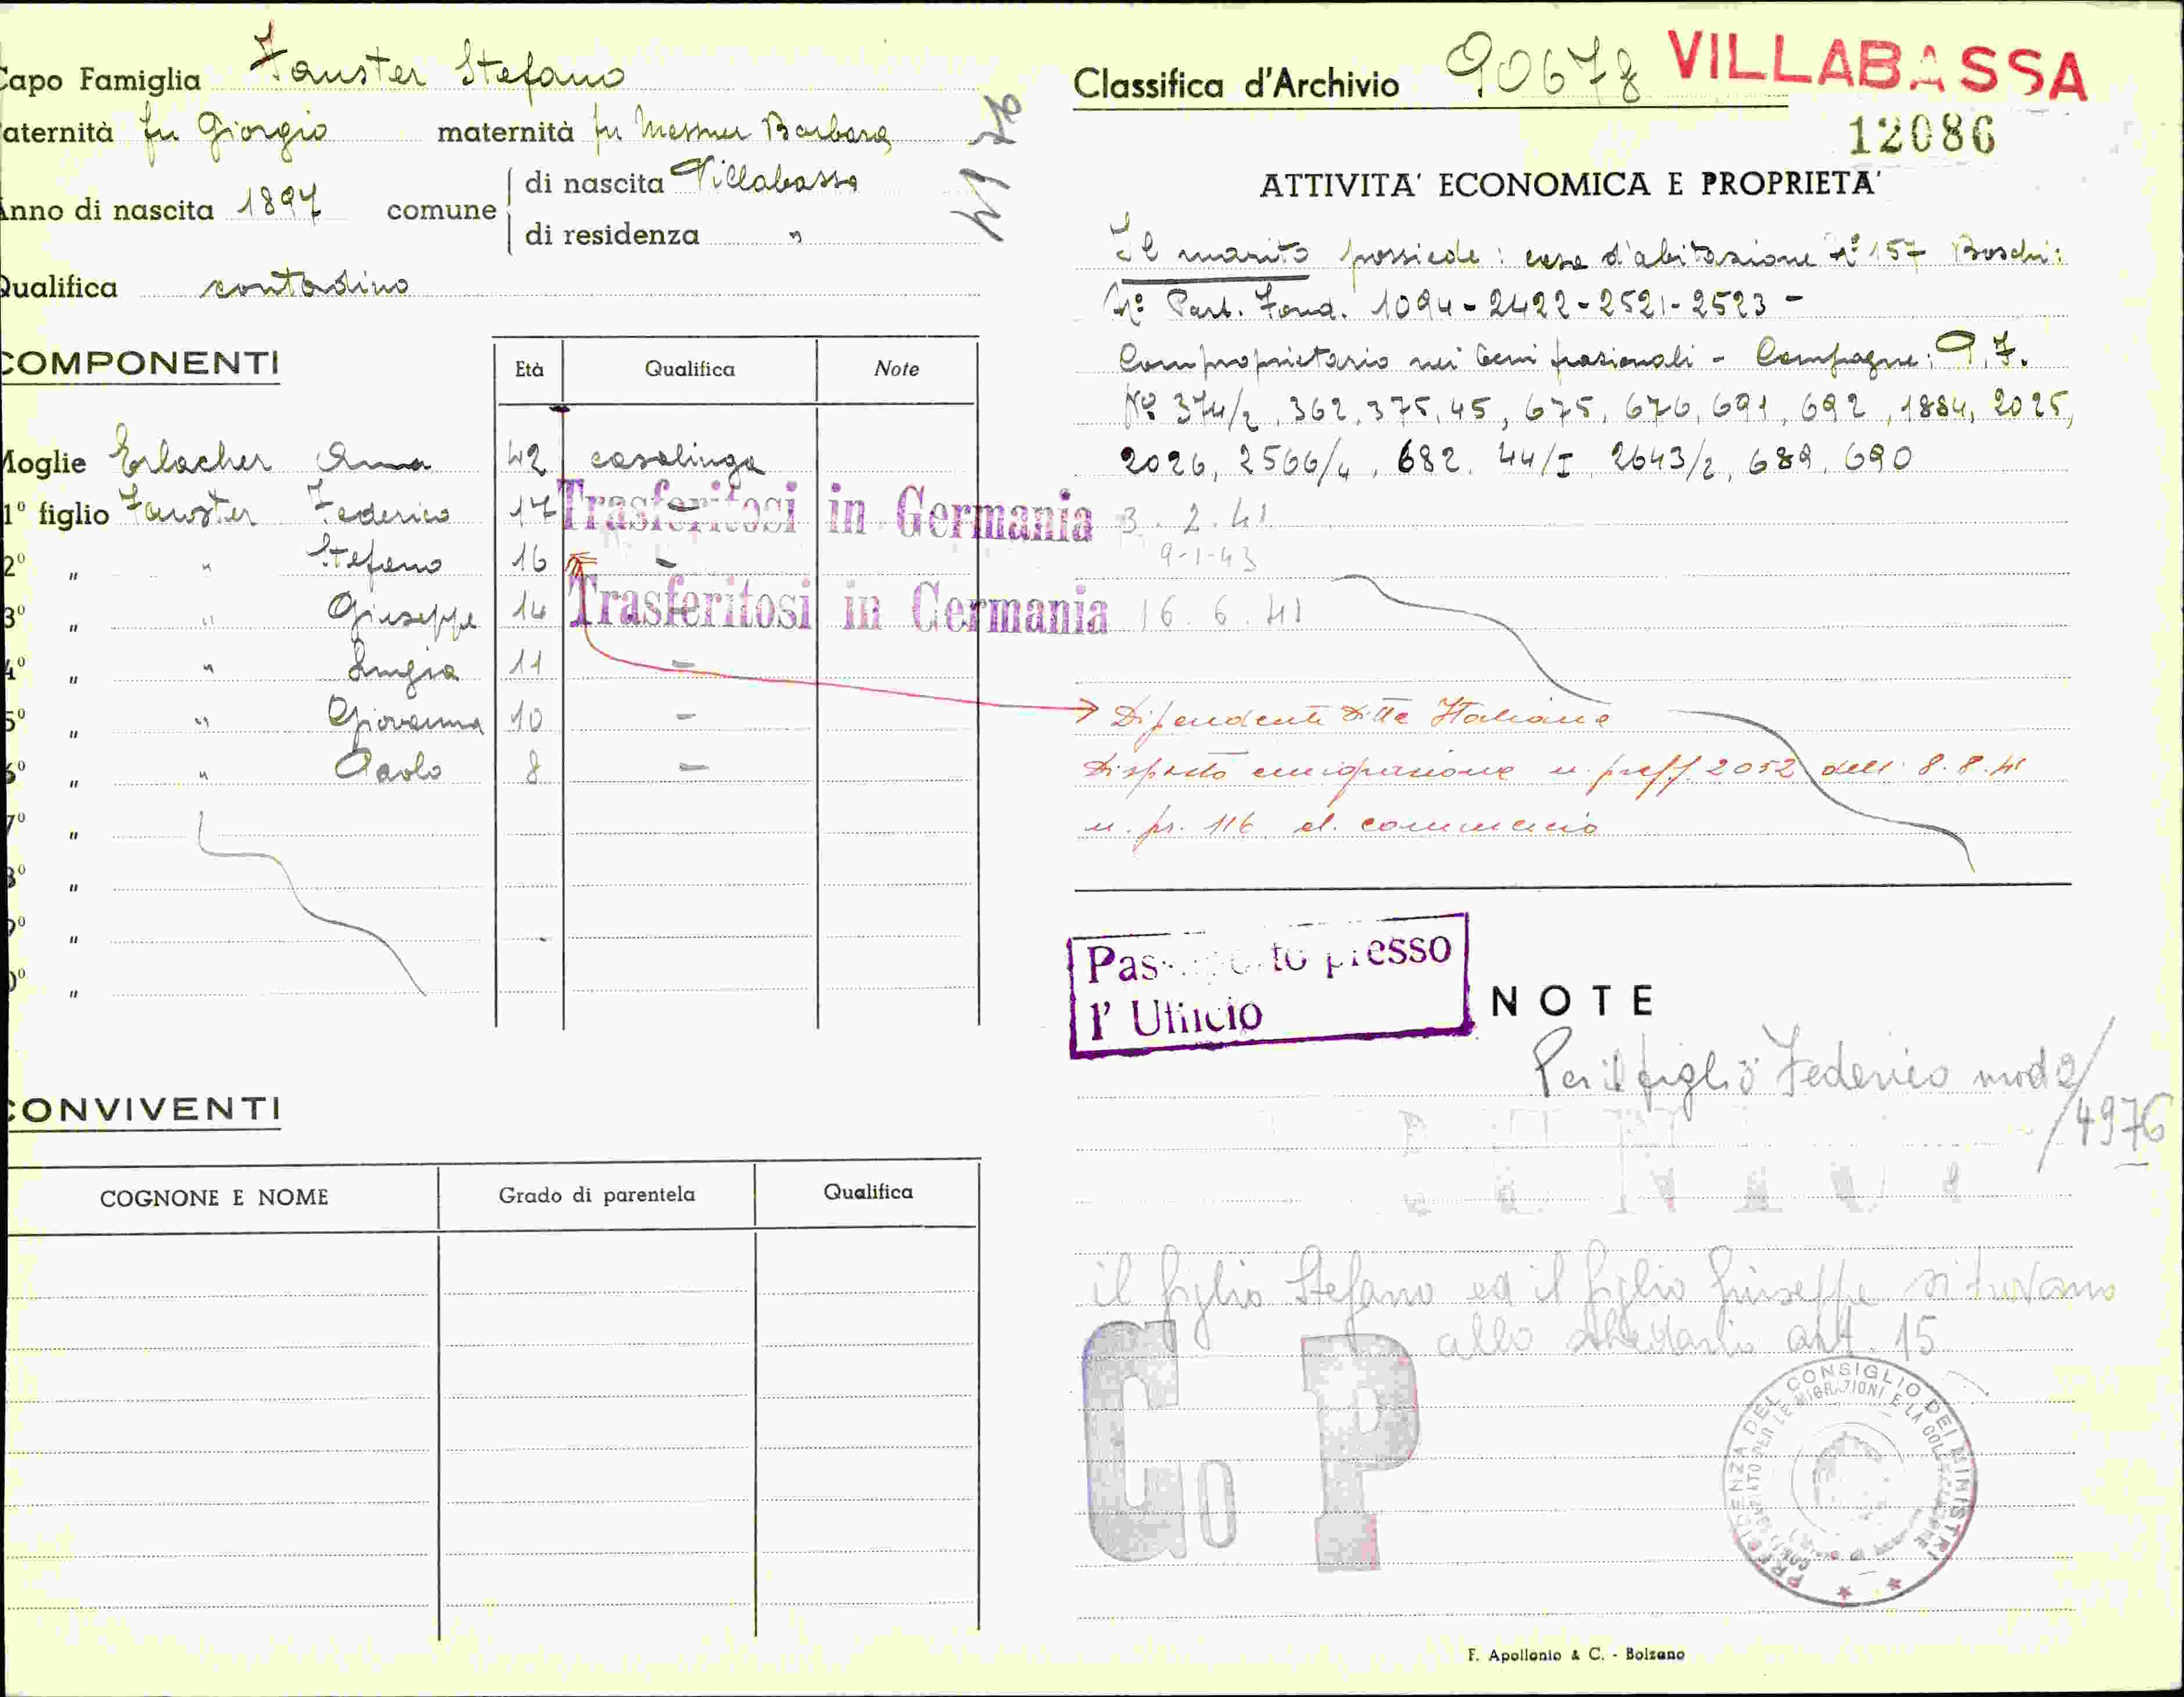 Capo Famiglia Fauster Stefano
aternità fu Giorgio maternità fu Messner Barbara
Anno di nascita 1897 comune di nascita Villabassa
di residenza "
Qualifica contadino
COMPONENTI
Età Qualifica Note
Moglie Erlacher Anna 42 casalinga
1° figlio Fauster Federico 17 -
Trasferitosi in Germania 3.2.41
2° " " Stefano 16 -
9-1-43
3° " " Giuseppe 14 -
Trasferitosi in Germania 16.6.41
4° " " Luigia 11 -
5° " " Giovanna 10 -
6° " " Paolo 8 -
7° "
8° "
9° "
0° "
CONVIVENTI
COGNONE E NOME Grado di parentela Qualifica
Classifica d'Archivio 90678 VILLABASSA
12086
ATTIVITA' ECONOMICA E PROPRIETA'
Il marito possiede: casa d'abitazione N° 157 Boschi:
N° Part. Fond. 1094-2422-2521-2523-
Comproprietario nei beni frazionali - Campagne: P.F.
N° 374/2, 362, 375, 45, 675, 676, 691, 692, 1884, 2025,
2026, 2566/4, 682. 44/I, 2643/2, 689, 690
Dipendente Ditta Italiana
Disposto emigrazione n. preff 2052 dell' 8.8.41
n. pr. 116 el. commercio
Passaporto presso
l' Ufficio
NOTE
Per il figlio Federico mod 2/
/4976
il figlio Stefano ed il figlio Giuseppe si trovano
allo schedario art. 15
Go P
PRESIDENZA DEL CONSIGLIO DEI MINISTRI
F. Apollonio & C. - Bolzano